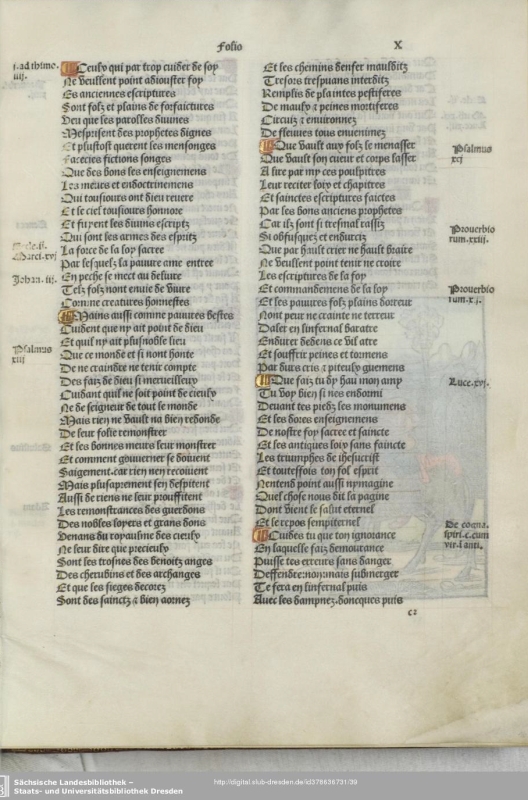 Folio X
i.ad thimo.
iiij.
Ceulx qui par trop cuider de soy
Ne veullent point adiouster foy
Es anciennes escriptures
Sont folz et plains de forfaictures
Veu que les parolles diuines
Mesprisent des prophetes dignes
Et plustost querent les mensonges
Faceties fictions songes
Que des bons les enseignemens
Les meurs et endoctrinemens
Qui tousiours ont dieu reuere
Et le ciel tousiours honnore
Et fuyent les diuins escriptz
Qui sont les armes des espritz
La force de la foy sacre
Marci.xvj
Par lesquelz la pauure ame entree
Johan. iij.
En peche se mect au deliure
Telz folz nont enuie de viure
Comme creatures honnestes
Mains aussi comme pauures bestes
Cuident que ny ait point de dieu
Et quil ny ait plus noble lieu
Psalmus
xiij
Que ce monde et si nont honte
De ne craindre ne tenir compte
Des faiz de dieu si merueilleux
Cuidant quil ne soit point de cieulx
Ne de seigneur de tout le monde
Mais rien ne vault na bien redonde
De leur folie remonstrer
Et les bonnes meurs leur monstrer
Et comment gouuerner se doiuent
Saigement.car rien nen recoiuent
Mais plusaprement sen despitent
Aussi de riens ne leur prouffitent
Les remonstrances des guerdons
Des nobles loyers et grans dons
Venans du royaulme des cieulx
Ne leur dire que precieulx
Sont les trosnes des benoitz anges
Des cherubins et des archanges
Et que les sieges decorez
Sont des sainctz & bien aornez
Et les chemins denfer mauldictz
Tresors trespuans interditz
Remplis de plaintes pestiferes
De maulx & peines mortiferes
Circuiz & enuironnez
De fleuues tous enueninez
Que vault aux folz le menasser
Psalmus
xcj
Que vault son cueur et corps lasser
A lire par my ces poulpitres
Leur reciter loix et chapitres
Et sainctes escriptures faictes
Par les bons anciens prophetes
Car ilz sont si tresmal rassiz
Prouerbio
rum.xxiij.
Si obfusquez et endurciz
Que par hault crier ne hault braire
Ne veullent point tenir ne croire
Les escriptures de la foy
Et commandemens de la loy
Prouerbio
rum.x
Et les pauures folz plains derreur
Nont peur ne crainte ne terreur
Daler en linfernal baratre
Endurer dedens ce vil atre
Et souffrir peines et tormens
Par durs cris & piteulx guemens
Que faiz tu dy hau mon amy
Luce.xvj.
Tu voy bien si nes endormi
Deuant tes piedz les monumens
Et les doces enseignemens
De nostre foy sacree et saincte
Et les antiques loix sans faincte
Les triumphes de ihesucrist
Et touteffois ton fol esprit
Nentend point aussi nymagine
Quel chose nous dit la pagine
Dont vient le salut eternel
Et le repos sempiternel
De cogna.
spiri.c.cum
vir.i anti.
Cuides tu que ton ignorance
En laquelle faiz demourance
Puisse tes erreurs sans danger
Deffendre:non:mais submerger
Te fera en linfernal puis
Auec les dampnez.doncques puis
c2
Sächsische Landesbibliothek –
Staats- und Universitätsbibliothek Dresden
http://digital.slub-dresden.de/id378636731/39